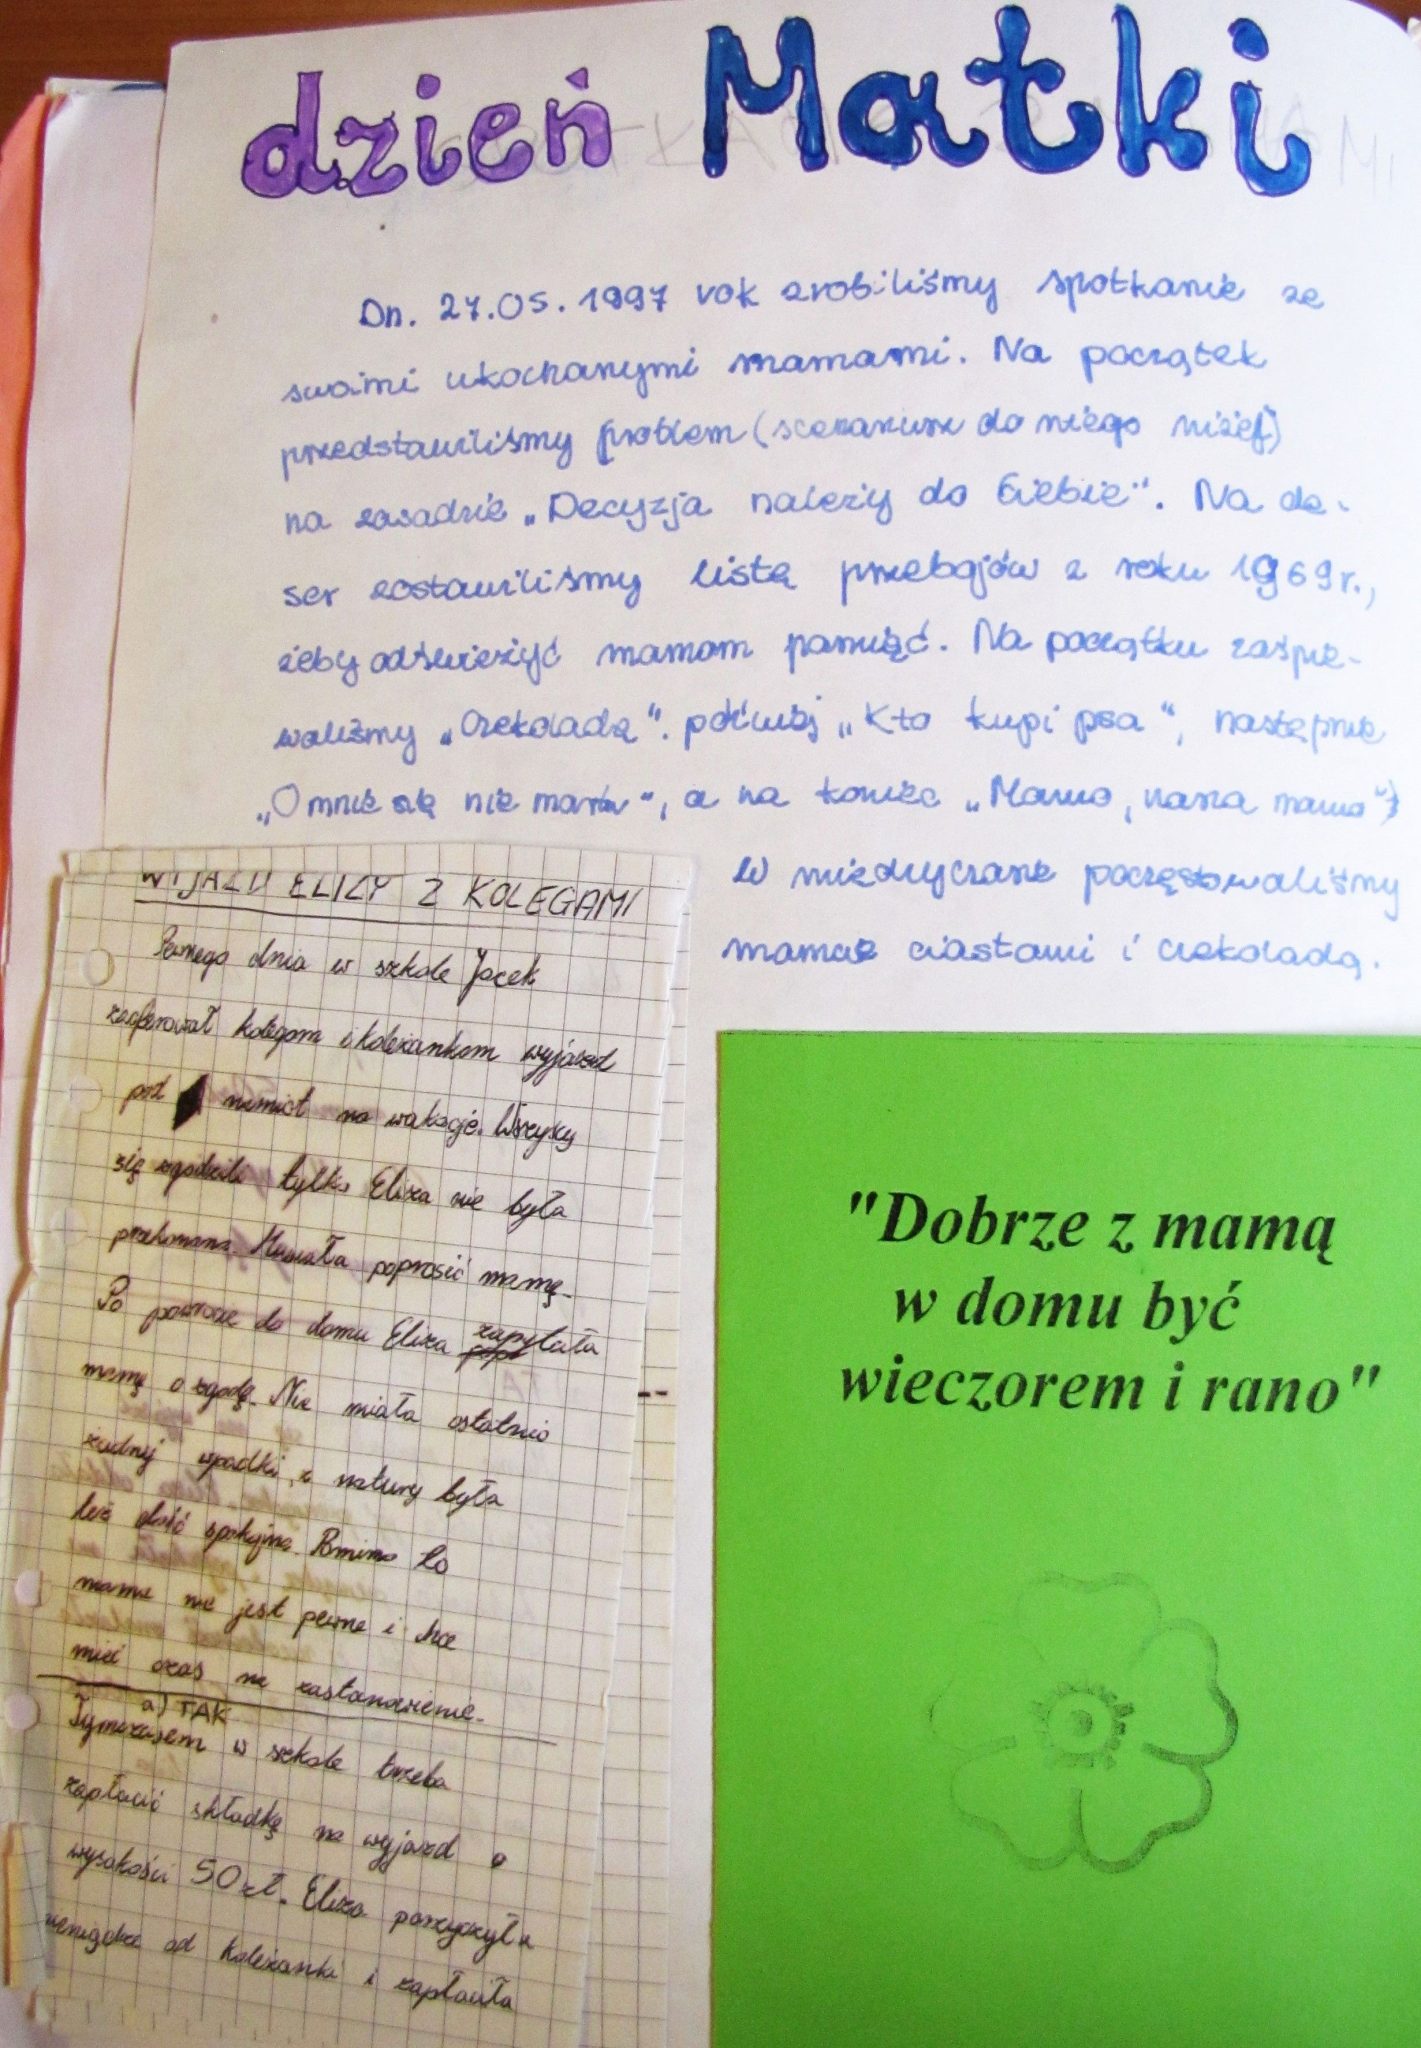 dzień Matki
Dn. 27.05.1997 rok zrobiliśmy spotkanie ze
swoimi ukochanymi mamami. Na początek
przedstawiliśmy problem (scenariusz do niego niżej)
na zasadzie „Decyzja należy do Ciebie". Na de-
ser zostawiliśmy listę przebojów z roku 1969 r.,
żeby odświeżyć mamom pamięć. Na początku zaśpie-
waliśmy „Czekoladę", później „Kto kupi psa", następnie
„O mnie się nie martw", a na koniec „Mamo, nasza mamo")
W międzyczasie poczęstowaliśmy
mamcie ciastami i czekoladą.
WYJAZD ELIZY Z KOLEGAMI
Pewnego dnia w szkole Jacek
zaoferował kolegom i koleżankom wyjazd
pod namiot na wakacje. Wszyscy
się zgodzili tylko Eliza nie była
przekonana. Musiała poprosić mamę.
Po powrocie do domu Eliza zapytała
mamę o zgodę. Nie miała ostatnio
żadnej wpadki, z natury była
też dość spokojna. Pomimo to
mama nie jest pewna i chce
mieć czas na zastanowienie.
a) TAK
Tymczasem w szkole trzeba
zapłacić składkę na wyjazd o
wysokości 50 zł. Eliza pożyczyła
pieniądze od koleżanki i zapłaciła
"Dobrze z mamą
w domu być
wieczorem i rano"